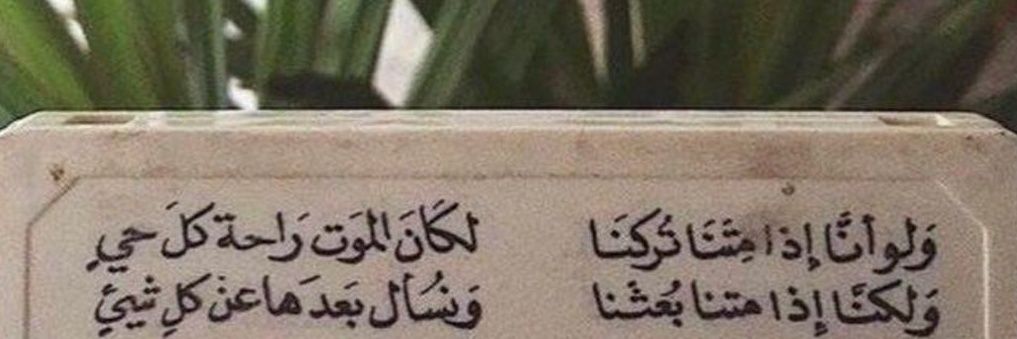 وَلو أنَّا إذا مِتنَا تُركنَا لكَانَ الموَت رَاحة كلَ حيٍ
وَلكنَّا إذا متنا بُعثنا وَنسُأل بَعدَها عن كلِ شيئٍ